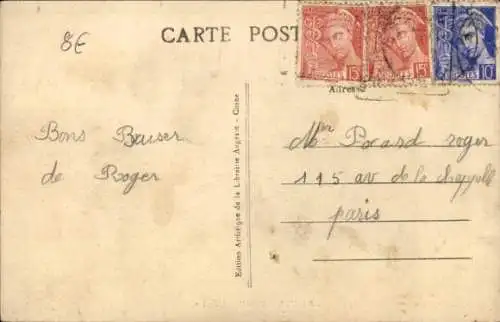 8E
CARTE POST
POSTES 15
POSTES 15
POSTES 10
Adres
Bons Baiser
de Roger
Edition Artistique de la Librairie
Mr Pocard roger
115 av de la chappelle
paris